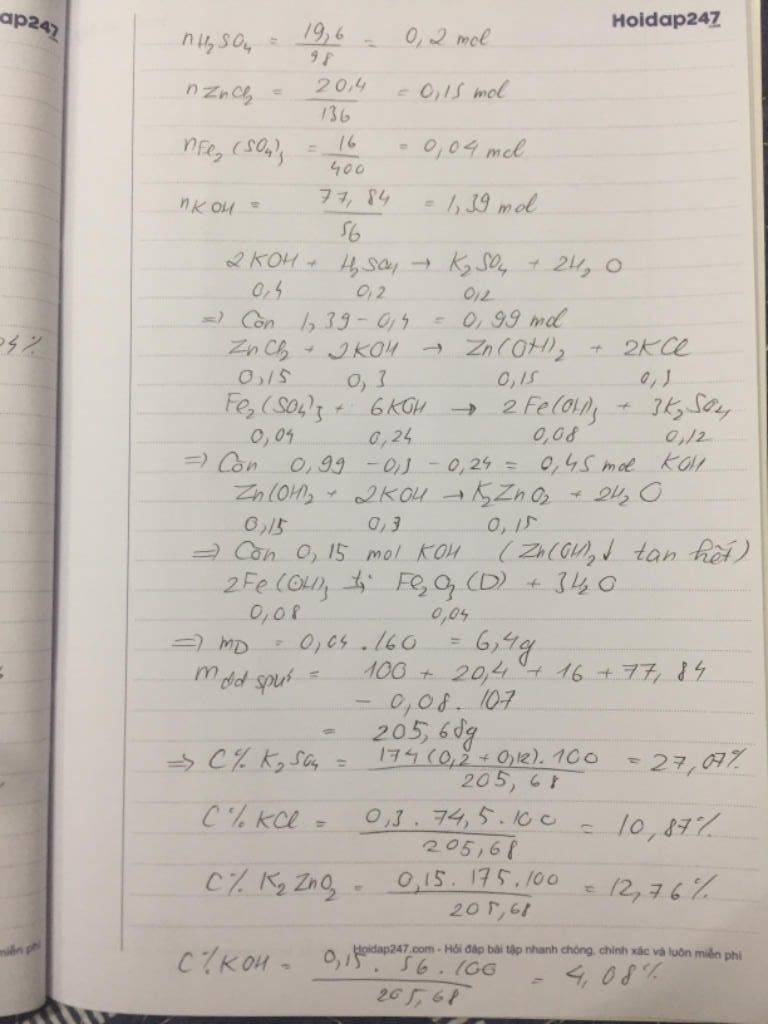 ap247
Hoidap247
nH2SO4 = 19,6/98 = 0,2 mol
nZnCl2 = 20,4/136 = 0,15 mol
nFe2(SO4)3 = 16/400 = 0,04 mol
nKOH = 77,84/56 = 1,39 mol
2KOH + H2SO4 → K2SO4 + 2H2O
0,4 0,2 0,2
=> Còn 1,39 - 0,4 = 0,99 mol
ZnCl2 + 2KOH → Zn(OH)2 + 2KCl
0,15 0,3 0,15 0,3
Fe2(SO4)3 + 6KOH → 2Fe(OH)3 + 3K2SO4
0,04 0,24 0,08 0,12
=> Còn 0,99 - 0,3 - 0,24 = 0,45 mol KOH
Zn(OH)2 + 2KOH → K2ZnO2 + 2H2O
0,15 0,3 0,15
=> Còn 0,15 mol KOH (Zn(OH)2↓ tan hết)
2Fe(OH)3 t° Fe2O3 (D) + 3H2O
0,08 0,04
=> mD = 0,04 . 160 = 6,4g
mdd spứ = 100 + 20,4 + 16 + 77,84
- 0,08 . 107
= 205,68g
=> C% K2SO4 = 174(0,2 + 0,12) . 100/205,68 = 27,07%
C% KCl = 0,3 . 74,5 . 100/205,68 = 10,87%
C% K2ZnO2 = 0,15 . 175 . 100/205,68 = 12,76%
miễn phí
Hoidap247.com - Hỏi đáp bài tập nhanh chóng, chính xác và luôn miễn phí
C% KOH = 0,15 . 56 . 100/205,68 = 4,08%